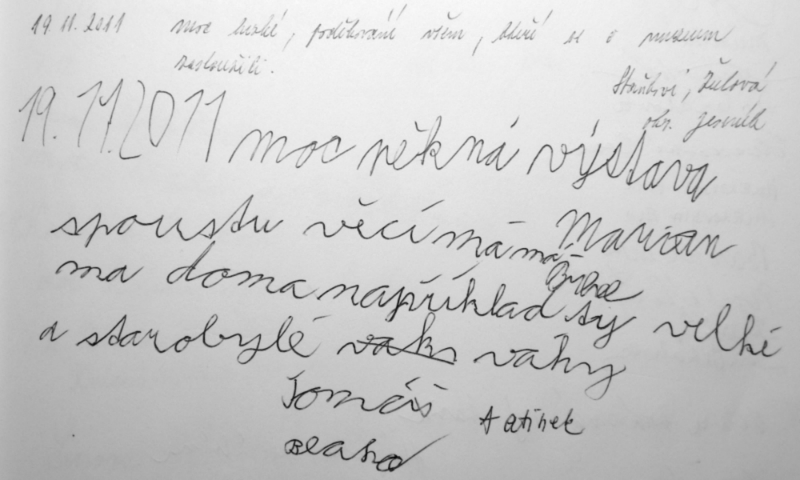 19.11.2011 moc hezké, poděkování všem, kteří se o muzeum
zasloužili.
Staňkovi, Žulová
okr. Jeseník
19.11.2011 moc pěkná výstava
spoustu věcí má má Marian
ma doma například ty velké
a starobylé váhy
Tomáš tatínek